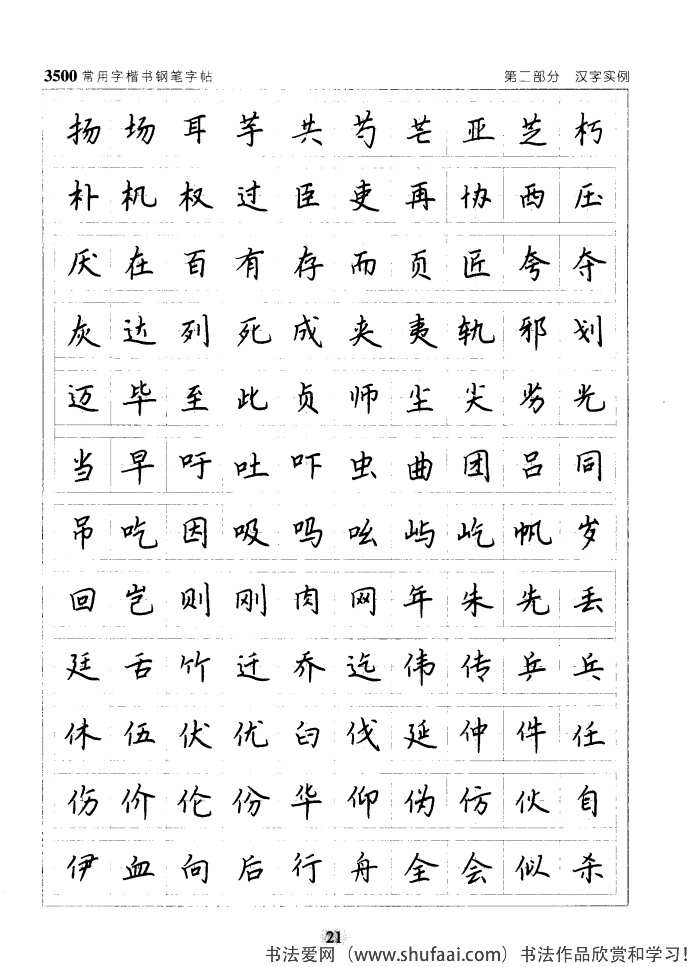 3500常用字楷书钢笔字帖 第二部分 汉字实例
扬 场 耳 芋 共 芍 芒 亚 芝 朽
朴 机 权 过 臣 吏 再 协 西 压
厌 在 百 有 存 而 页 匠 夸 夺
灰 达 列 死 成 夹 夷 轨 邪 划
迈 毕 至 此 贞 师 尘 尖 劣 光
当 早 吁 吐 吓 虫 曲 团 吕 同
吊 吃 因 吸 吗 吆 屿 屹 帆 岁
回 岂 则 刚 肉 网 年 朱 先 丢
廷 舌 竹 迁 乔 迄 伟 传 乒 乓
休 伍 伏 优 臼 伐 延 仲 件 任
伤 价 伦 份 华 仰 伪 仿 伙 自
伊 血 向 后 行 舟 全 会 似 杀
21
书法爱网（www.shufaai.com）书法作品欣赏和学习!